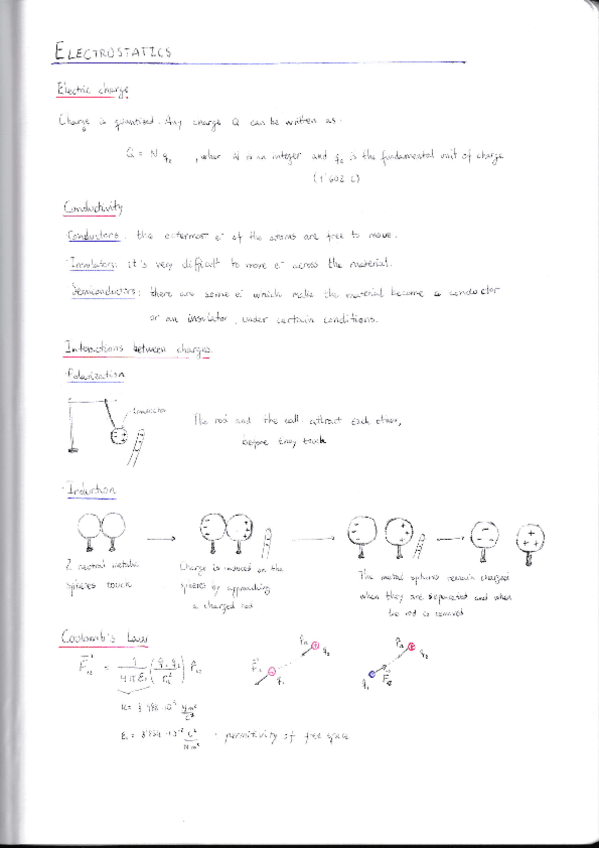 ELECTROSTATICS
Electric charge
Charge is quantized. Any charge Q can be written as:
Q = N q₀ , where N is an integer and q₀ is the fundamental unit of charge
(1'602 C)
Conductivity
Conductors: the outermost e⁻ of the atoms are free to move.
Insulators: it's very difficult to move e⁻ across the material.
Semiconductors: there are some e⁻ which make the material become a conductor
or an insulator, under certain conditions.
Interactions between charges
Polarization
conductor
The rod and the ball attract each other,
before they touch
Induction
2 neutral metallic
spheres touch
Charge is induced on the
spheres by approaching
a charged rod
The metal spheres remain charged
when they are separated and when
the rod is removed
Coulomb's Law
= 1 / 4πε₀ (q₁ q₂ / r₁₂²)
q₂
q₁
q₂
q₁
- permitivity of free space